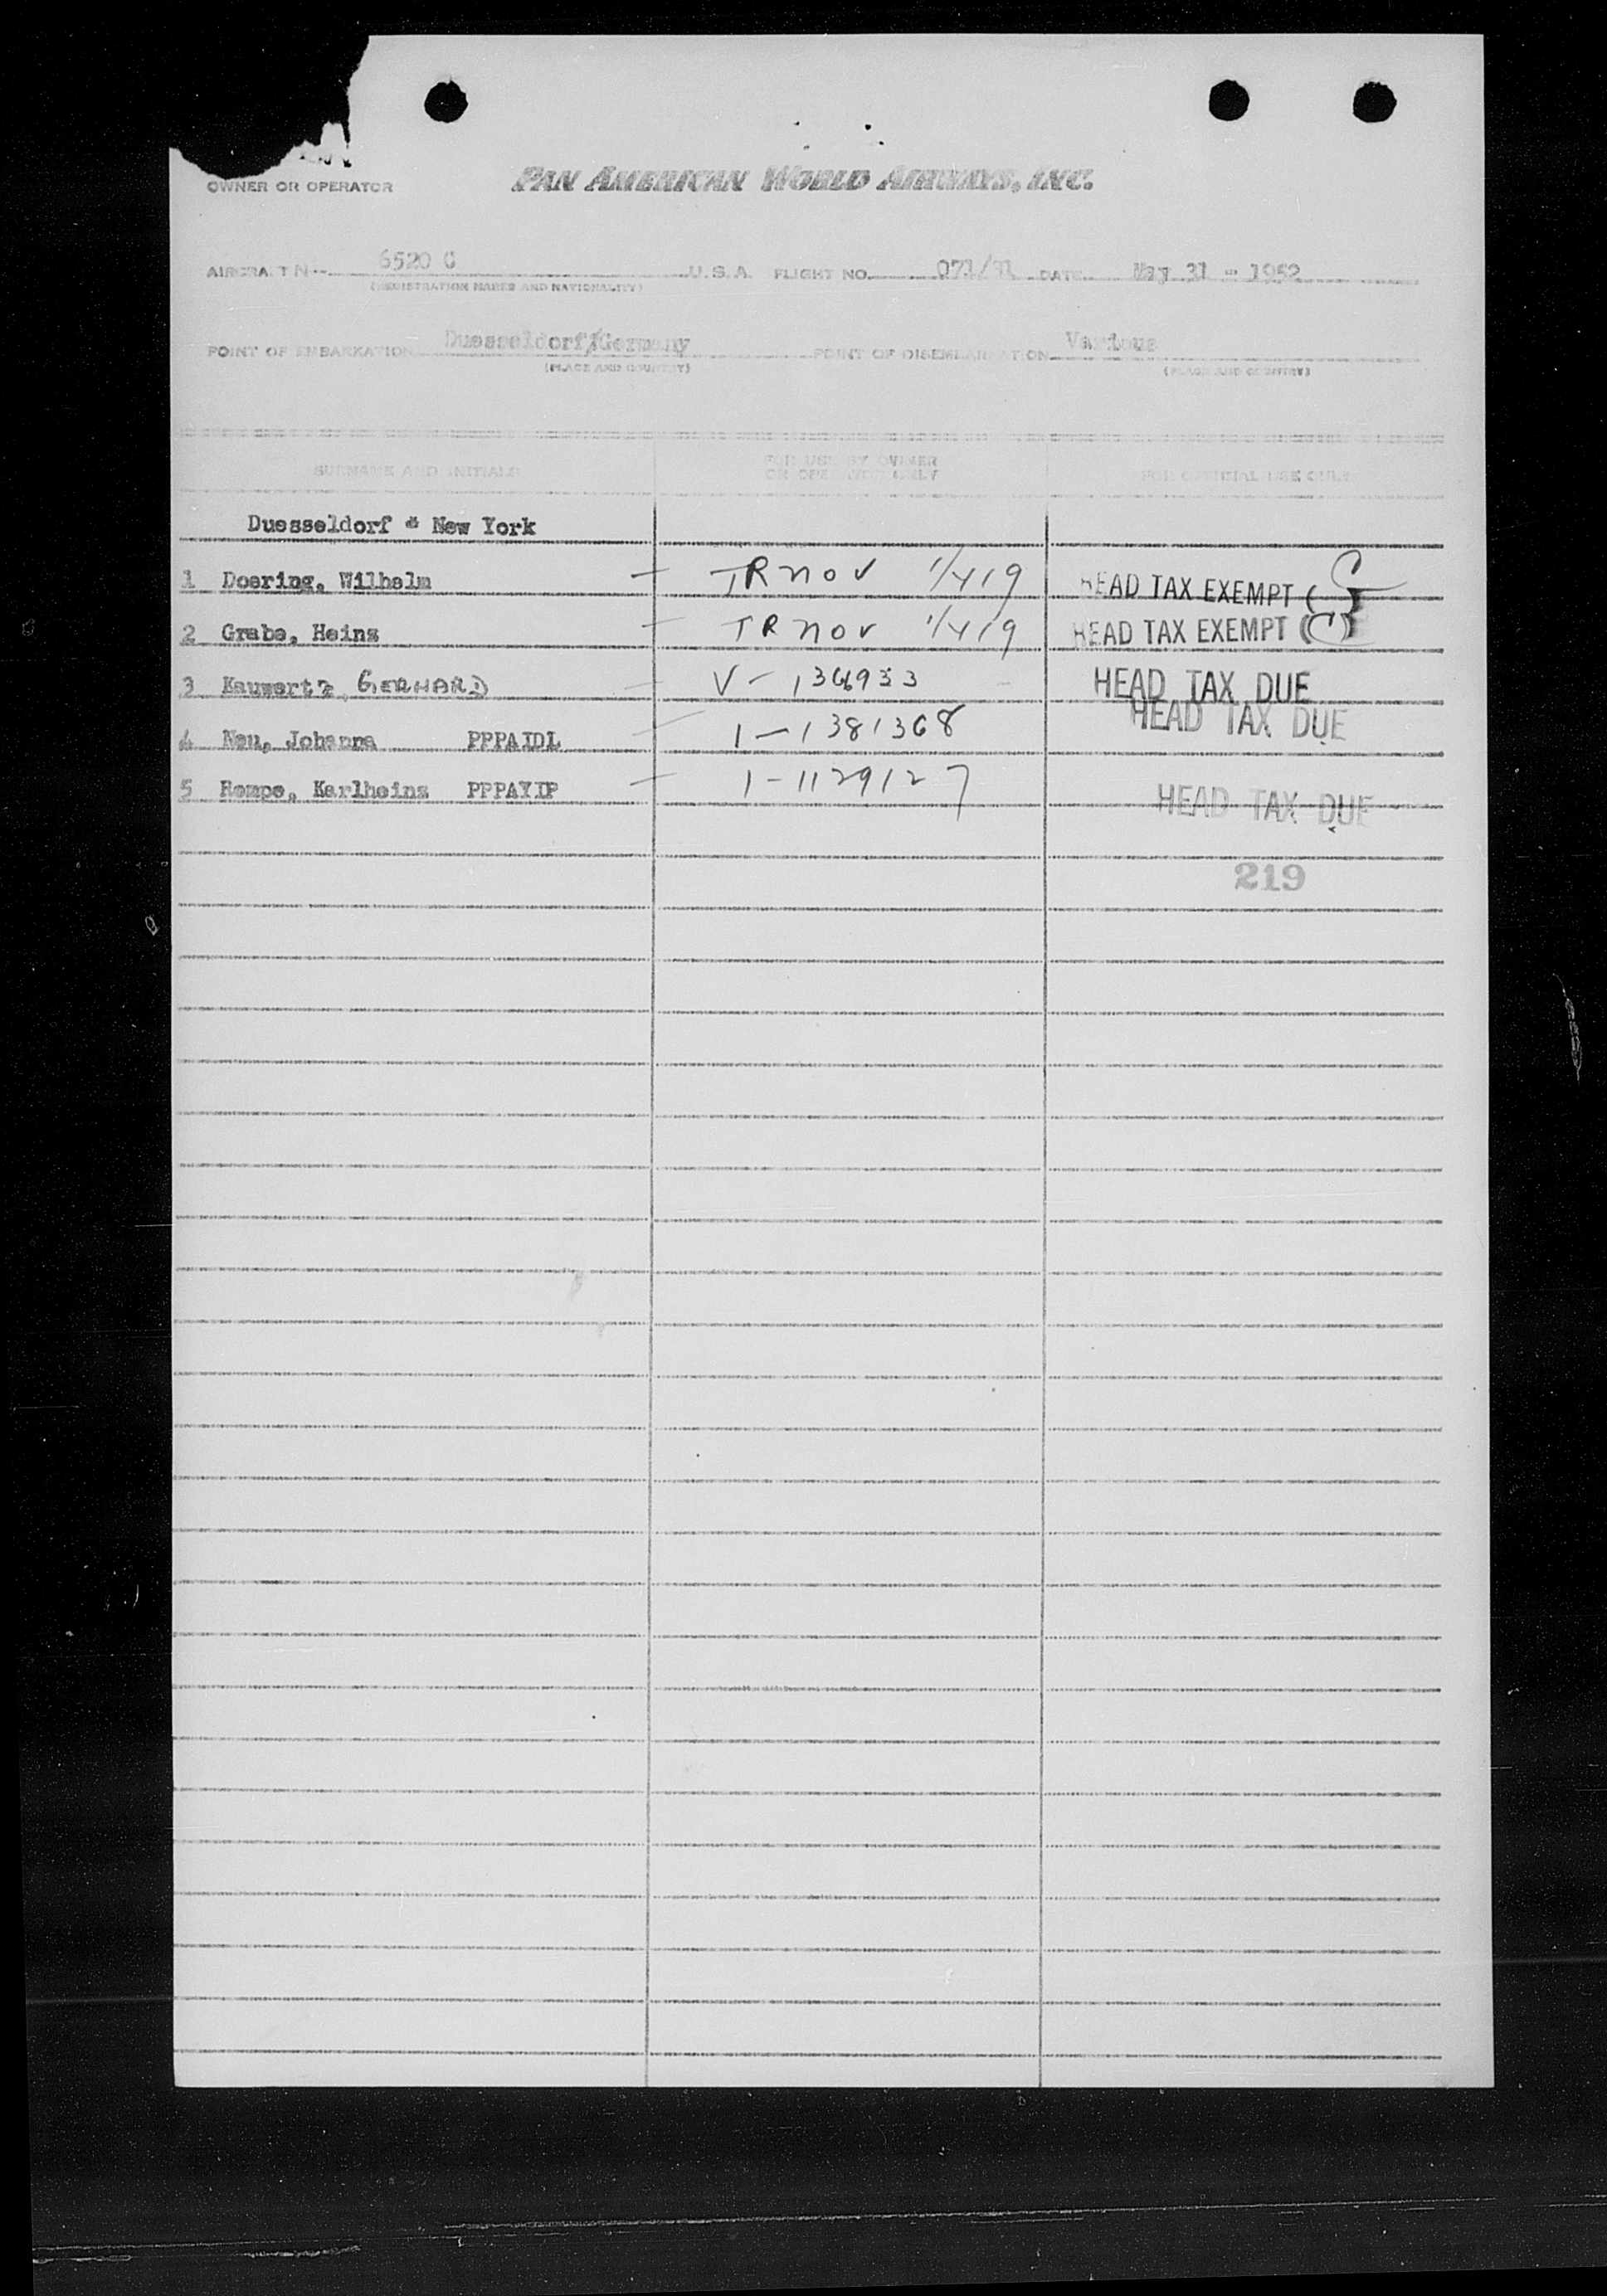 OWNER OR OPERATOR PAN AMERICAN WORLD AIRWAYS, INC.
AIRCRAFT N-- 6520 C U.S.A. FLIGHT NO. 071/31 DATE May 31 - 1952
(REGISTRATION MARKS AND NATIONALITY)
POINT OF EMBARKATION Duesseldorf/Germany POINT OF DISEMBARKATION Various
(PLACE AND COUNTRY) (PLACE AND COUNTRY)
SURNAME AND INITIALS FOR USE BY OWNER OR OPERATOR ONLY FOR OFFICIAL USE ONLY
Duesseldorf - New York
1 Doering, Wilhelm — TR nov 1/419 HEAD TAX EXEMPT
2 Grabe, Heinz — TR nov 1/419 HEAD TAX EXEMPT
3 Kauwertz, GERHARD — V-1366933 HEAD TAX DUE
4 Neu, Johanna PPPAIDL — 1-1381368 HEAD TAX DUE
5 Rempe, Karlheinz PPPAYIP — 1-1129127 HEAD TAX DUE
219